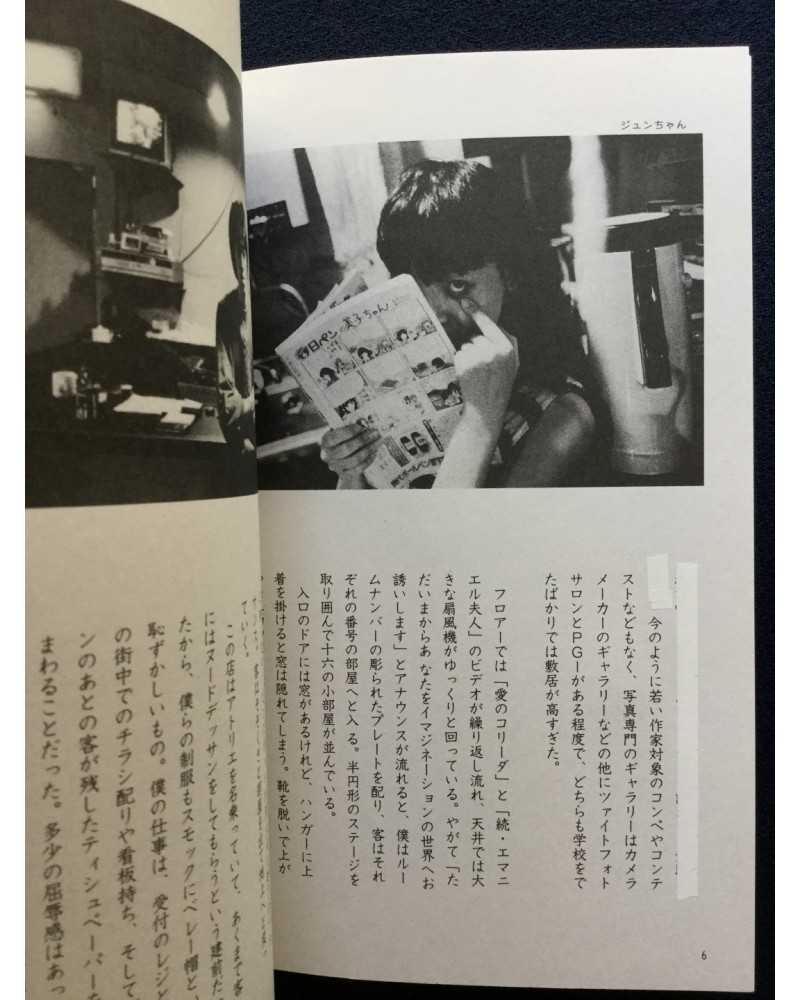 ジュンちゃん
日ペンの美子ちゃん
今のように若い作家対象のコンペやコンテ
ストなどもなく、写真専門のギャラリーはカメラ
メーカーのギャラリーなどの他にツァイトフォト
サロンとPGIがある程度で、どちらも学校をで
たばかりでは敷居が高すぎた。
フロアーでは「愛のコリーダ」と「続・エマニ
エル夫人」のビデオが繰り返し流れ、天井では大
きな扇風機がゆっくりと回っている。やがて「た
だいまからあなたをイマジネーションの世界へお
誘いします」とアナウンスが流れると、僕はルー
ムナンバーの彫られたプレートを配り、客はそれ
ぞれの番号の部屋へと入る。半円形のステージを
取り囲んで十六の小部屋が並んでいる。
入口のドアには窓があるけれど、ハンガーに上
着を掛けると窓は隠れてしまう。靴を脱いで上が
6
ていく。
この店はアトリエを名乗っていて、あくまで客
にはヌードデッサンをしてもらうという建前だ
たから、僕らの制服もスモックにベレー帽と、
恥ずかしいもの。僕の仕事は、受付のレジと
の街中でのチラシ配りや看板持ち、そして
ンのあとの客が残したティシュペーパーを
まわることだった。多少の屈辱感はあっ